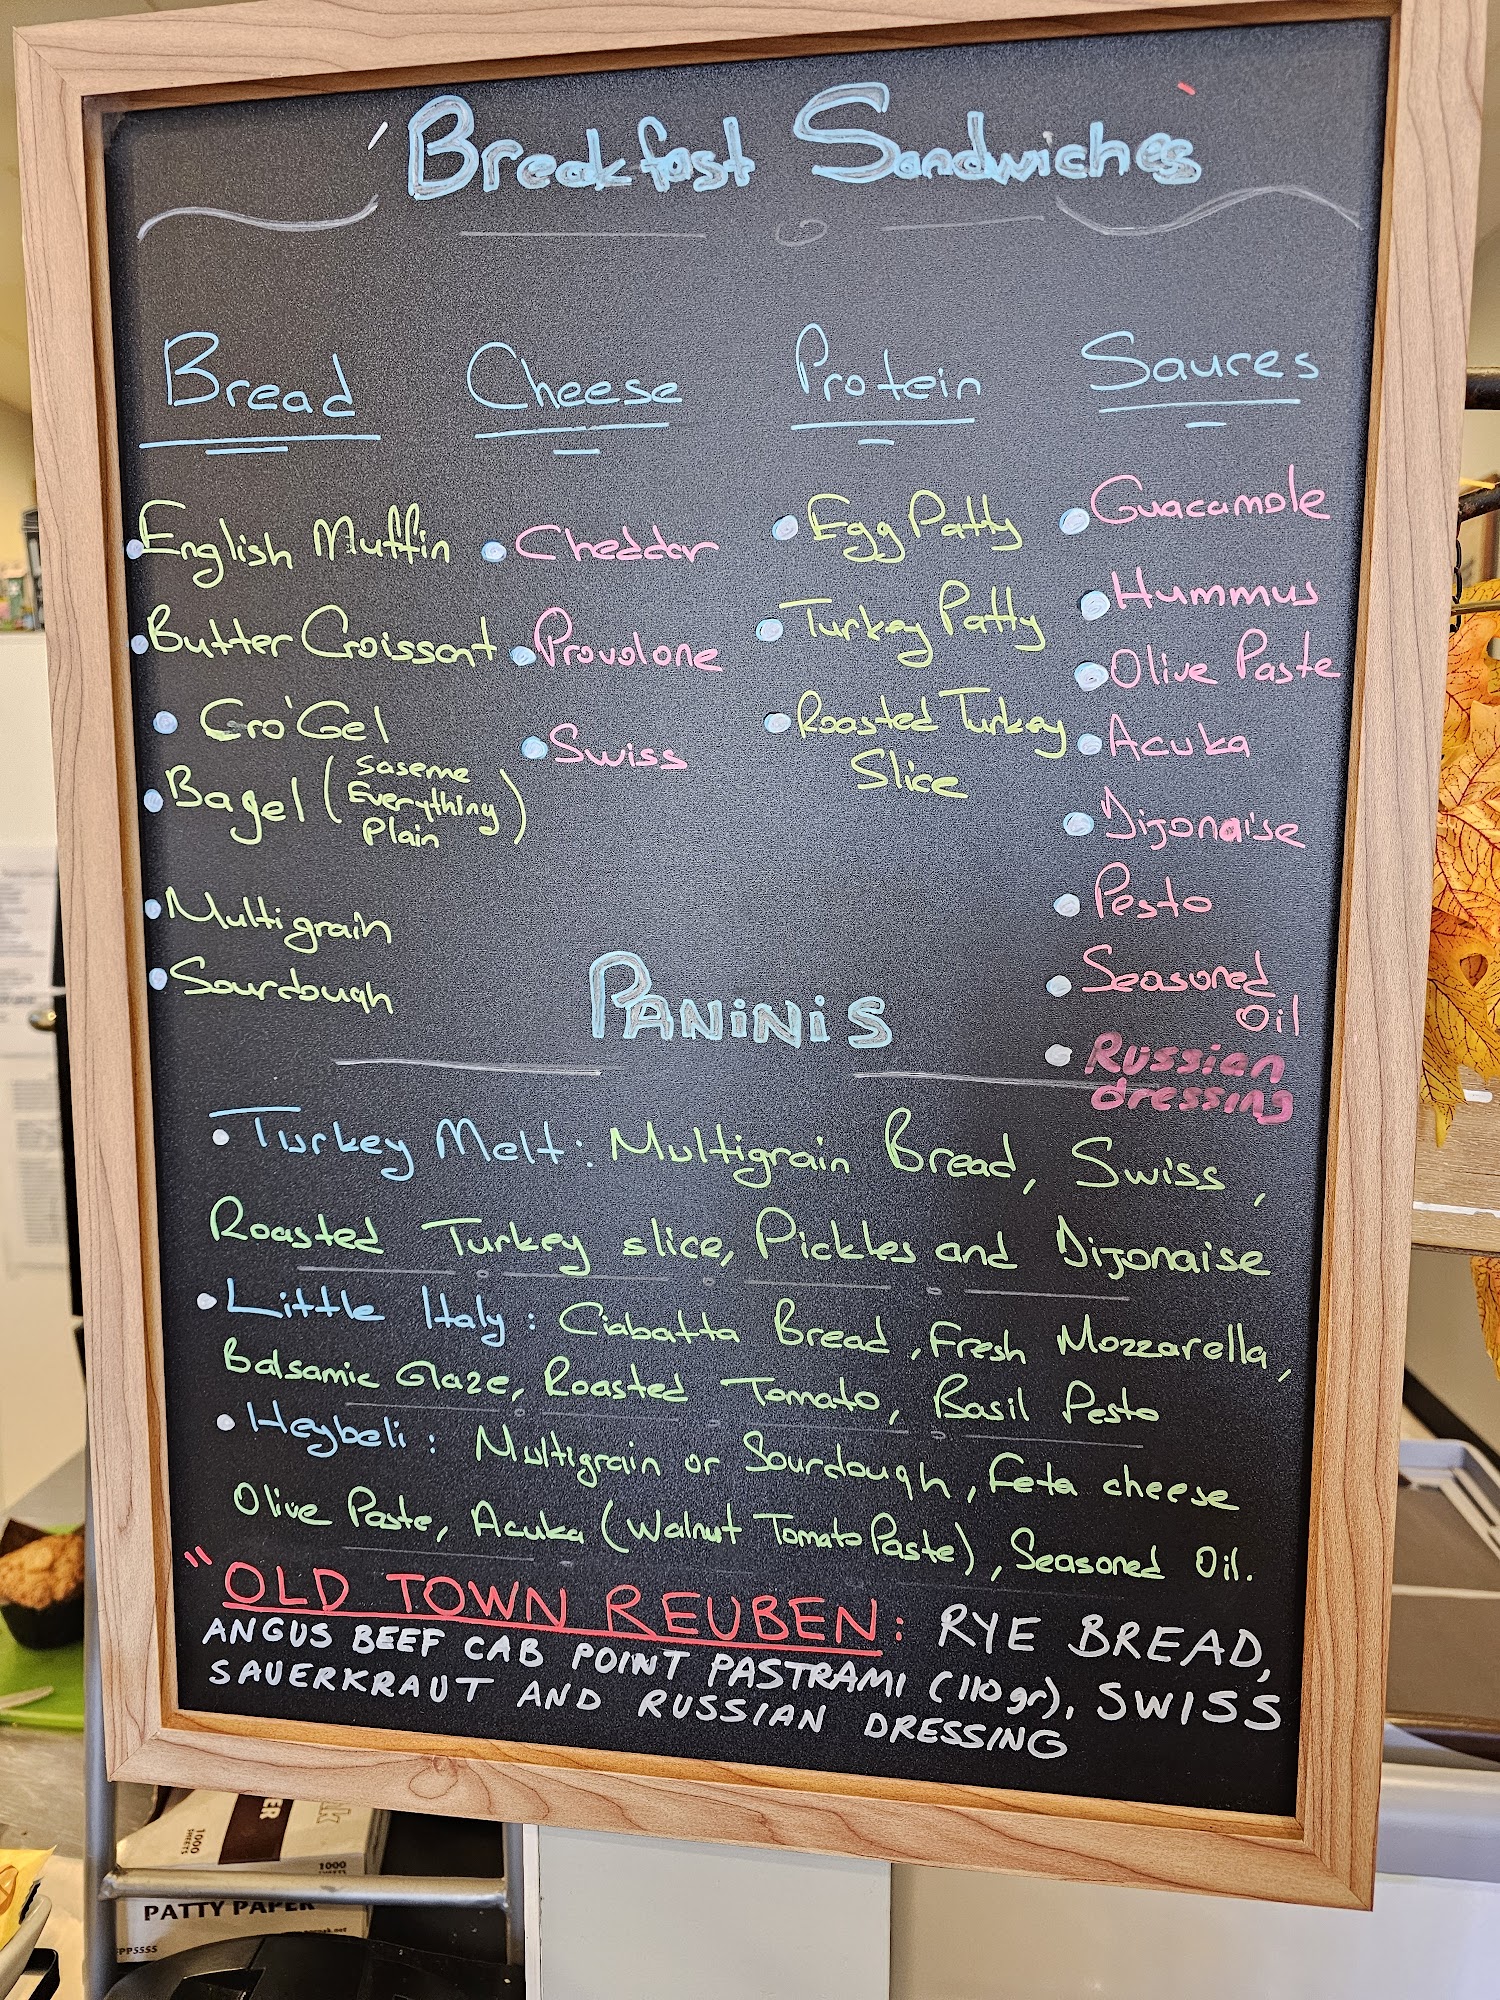 Breakfast Sandwiches
Bread
English Muffin
Butter Croissant
Cro'Gel
Bagel (Saseme
Everything
Plain)
Multigrain
Sourdough
Cheese
Cheddar
Provolone
Swiss
Protein
Egg Patty
Turkey Patty
Roasted Turkey
Slice
Saures
Guacamole
Hummus
Olive Paste
Acuka
Dijonaise
Pesto
Seasoned
Oil
Russian
dressing
PANiNiS
Turkey Melt: Multigrain Bread, Swiss,
Roasted Turkey slice, Pickles and Dijonaise
Little Italy: Ciabatta Bread, Fresh Mozzarella,
Balsamic Glaze, Roasted Tomato, Basil Pesto
Heybeli: Multigrain or Sourdough, Feta cheese
Olive Paste, Acuka (Walnut Tomato Paste), Seasoned Oil.
"OLD TOWN REUBEN: RYE BREAD,
ANGUS BEEF CAB POINT PASTRAMI (110gr), SWISS
SAUERKRAUT AND RUSSIAN DRESSING
1000
SHEETS
1000
PATTY PAPER
PP5555